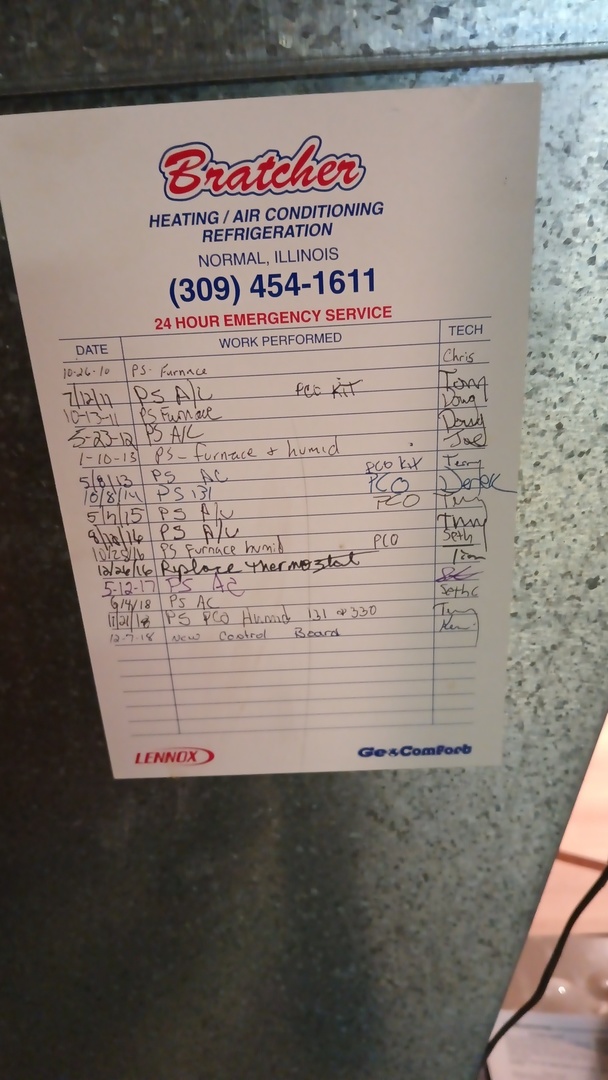 Bratcher
HEATING / AIR CONDITIONING
REFRIGERATION
NORMAL, ILLINOIS
(309) 454-1611
24 HOUR EMERGENCY SERVICE
DATE WORK PERFORMED TECH
10-26-10 PS- Furnace Chris
7/12/11 PS A/C PCO KIT Tom
10-13-11 PS Furnace Doug
5-23-12 PS A/C
1-10-13 PS - furnace + humid Joe
5/8/13 PS AC PCO KIT
10/8/14 PS 131 PCO Derek
15 PS A/C PCO
16 PS A/C
10/25/16 PS Furnace humid PCO Seth
12/26/16 Replace thermostat
5-12-17 PS AC
6/4/18 PS AC Seth C
PS PCO Humid 131 330
12-7-18 New Control Board
LENNOX GeoComfort